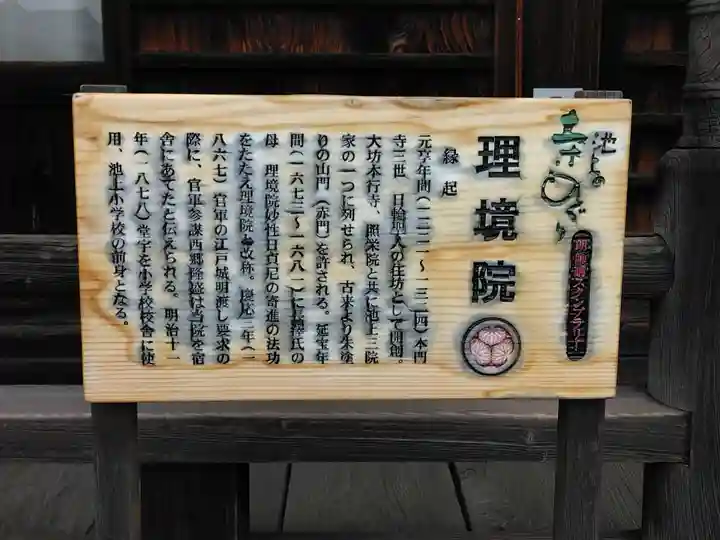 池上の
朗師廻スタンプラリー
理境院
縁起
元亨年間（一三二一～一三二四）本門
寺三世 日輪聖人の住坊として開創。
大坊本行寺、照栄院と共に池上三院
家の一つに列せられ、古来より朱塗
りの山門（赤門）を許される。延宝年
間（一六七三～一六八一）に長 氏の
母 理境院妙性日貞尼の寄進の法功
をたたえ理境院と改称。慶応三年（一
八六七）官軍の江戸城明渡し要求の
際に、官軍参謀西郷隆盛は当院を宿
舎にあてたと伝えられる。明治十一
年（一八七八）堂宇を小学校校舎に使
用、池上小学校の前身となる。